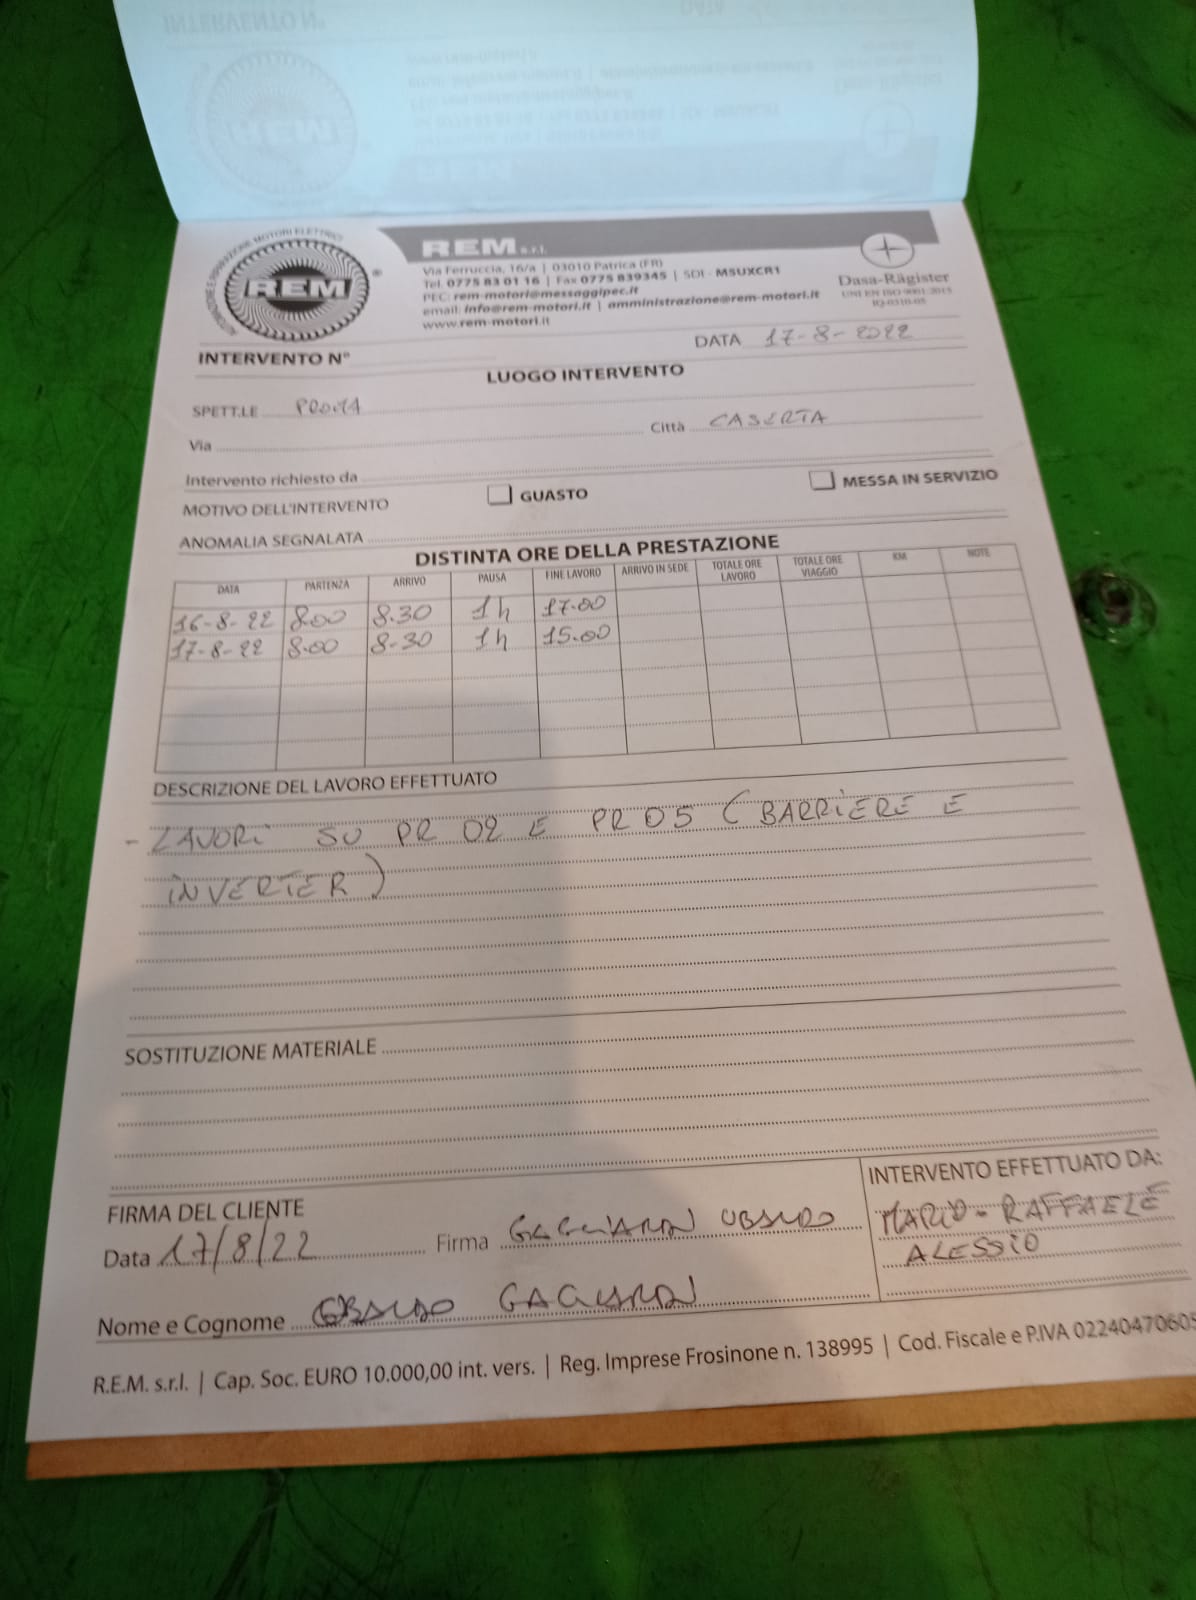 AUTOMAZIONE E RIPARAZIONE MOTORI ELETTRICI
REM
®
REM s.r.l.
Via Ferruccia, 16/a | 03010 Patrica (FR)
Tel. 0775 83 01 16 | Fax 0775 839345 | SDI - M5UXCR1
PEC: rem-motori@messaggipec.it
email: info@rem-motori.it | amministrazione@rem-motori.it
www.rem-motori.it
Dasa-Rägister
UNI EN ISO 9001:2015
IQ-0310-05
INTERVENTO N°
DATA 17-8-2022
LUOGO INTERVENTO
SPETT.LE PROMA
Via Città CASERTA
Intervento richiesto da
MOTIVO DELL'INTERVENTO GUASTO MESSA IN SERVIZIO
ANOMALIA SEGNALATA
DISTINTA ORE DELLA PRESTAZIONE
DATA PARTENZA ARRIVO PAUSA FINE LAVORO ARRIVO IN SEDE TOTALE ORE LAVORO TOTALE ORE VIAGGIO KM NOTE
16-8-22 8.00 8.30 1h 17.00
17-8-22 8.00 8-30 1h 15.00
DESCRIZIONE DEL LAVORO EFFETTUATO
- LAVORi SU PR 02 E PR 05 ( BARRiERE E
iNVERTER )
SOSTITUZIONE MATERIALE
FIRMA DEL CLIENTE
Data 17/8/22 Firma GAGLIARDI UBALDO
Nome e Cognome UBALDO GAGLIARDI
INTERVENTO EFFETTUATO DA:
MARIO - RAFFAELE
ALESSIO
R.E.M. s.r.l. | Cap. Soc. EURO 10.000,00 int. vers. | Reg. Imprese Frosinone n. 138995 | Cod. Fiscale e P.IVA 02240470605